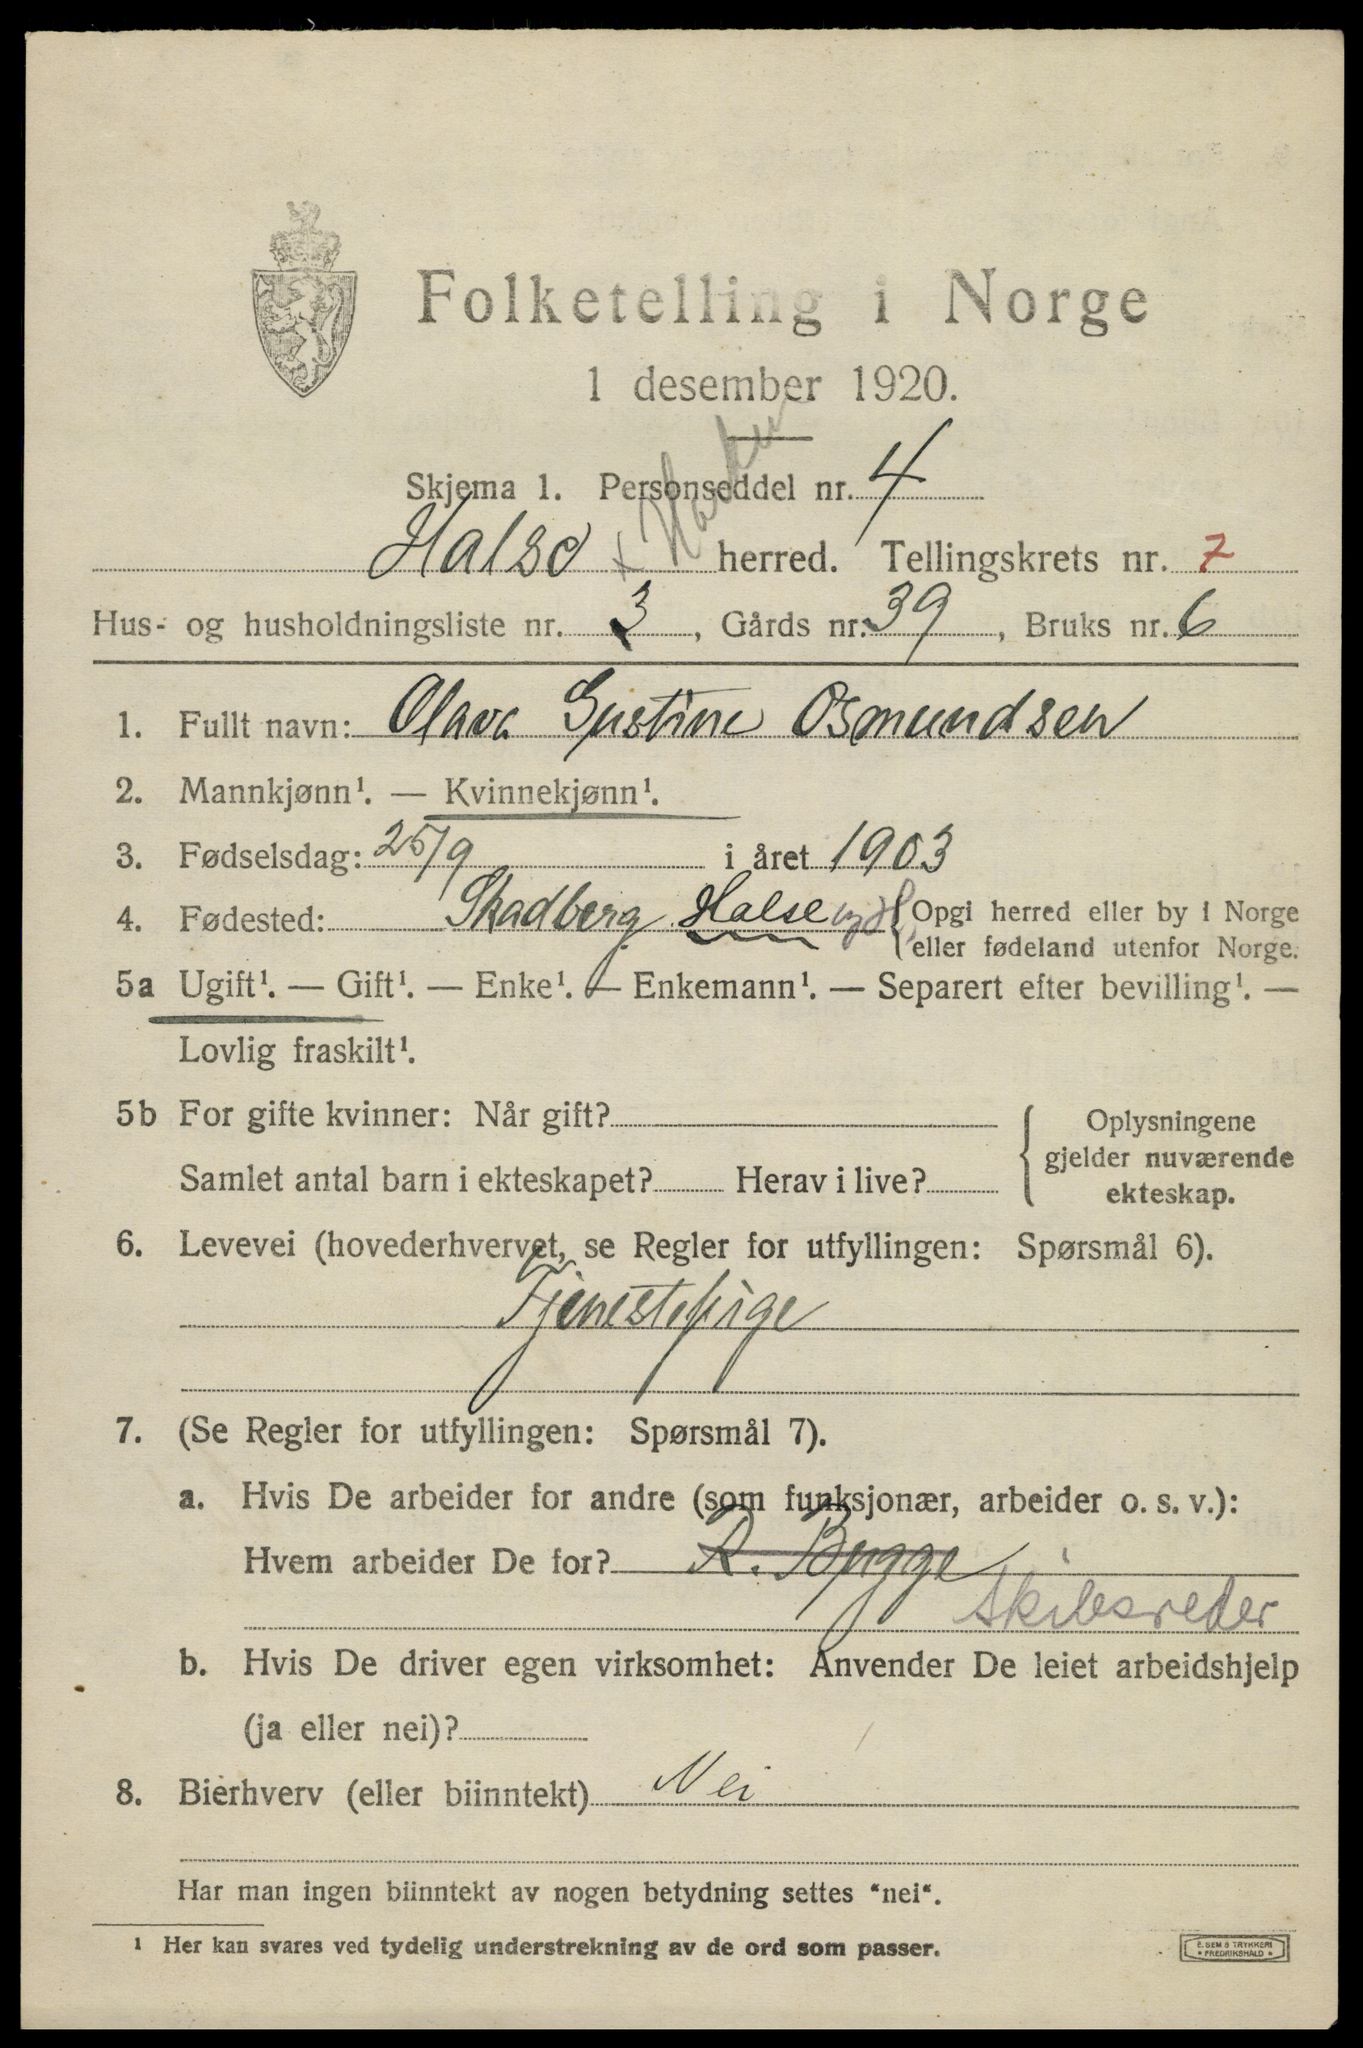 Folketelling i Norge
1 desember 1920.
Skjema 1. Personseddel nr. 4
Halse + Harkm herred. Tellingskrets nr. 7
Hus- og husholdningsliste nr. 3, Gårds nr. 39, Bruks nr. 6
1. Fullt navn: Olava Gustine Osmundsen
2. Mannkjønn¹. — Kvinnekjønn¹.
3. Fødselsdag: 25/9 i året 1903
4. Fødested: Skadberg Halse og H. { Opgi herred eller by i Norge
eller fødeland utenfor Norge.
5a Ugift¹. — Gift¹. — Enke¹. — Enkemann¹. — Separert efter bevilling¹. —
Lovlig fraskilt¹.
5b For gifte kvinner: Når gift?
Samlet antal barn i ekteskapet? Herav i live?
Oplysningene
gjelder nuværende
ekteskap.
6. Levevei (hovederhvervet, se Regler for utfyllingen: Spørsmål 6).
Tjenestepige
7. (Se Regler for utfyllingen: Spørsmål 7).
a. Hvis De arbeider for andre (som funksjonær, arbeider o. s. v.):
Hvem arbeider De for? R. Bugge
Skibsreder
b. Hvis De driver egen virksomhet: Anvender De leiet arbeidshjelp
(ja eller nei)?
8. Bierhverv (eller biinntekt) Nei
Har man ingen biinntekt av nogen betydning settes "nei".
¹ Her kan svares ved tydelig understrekning av de ord som passer.
E. SEM'S TRYKKERI
* FREDRIKSHALD *